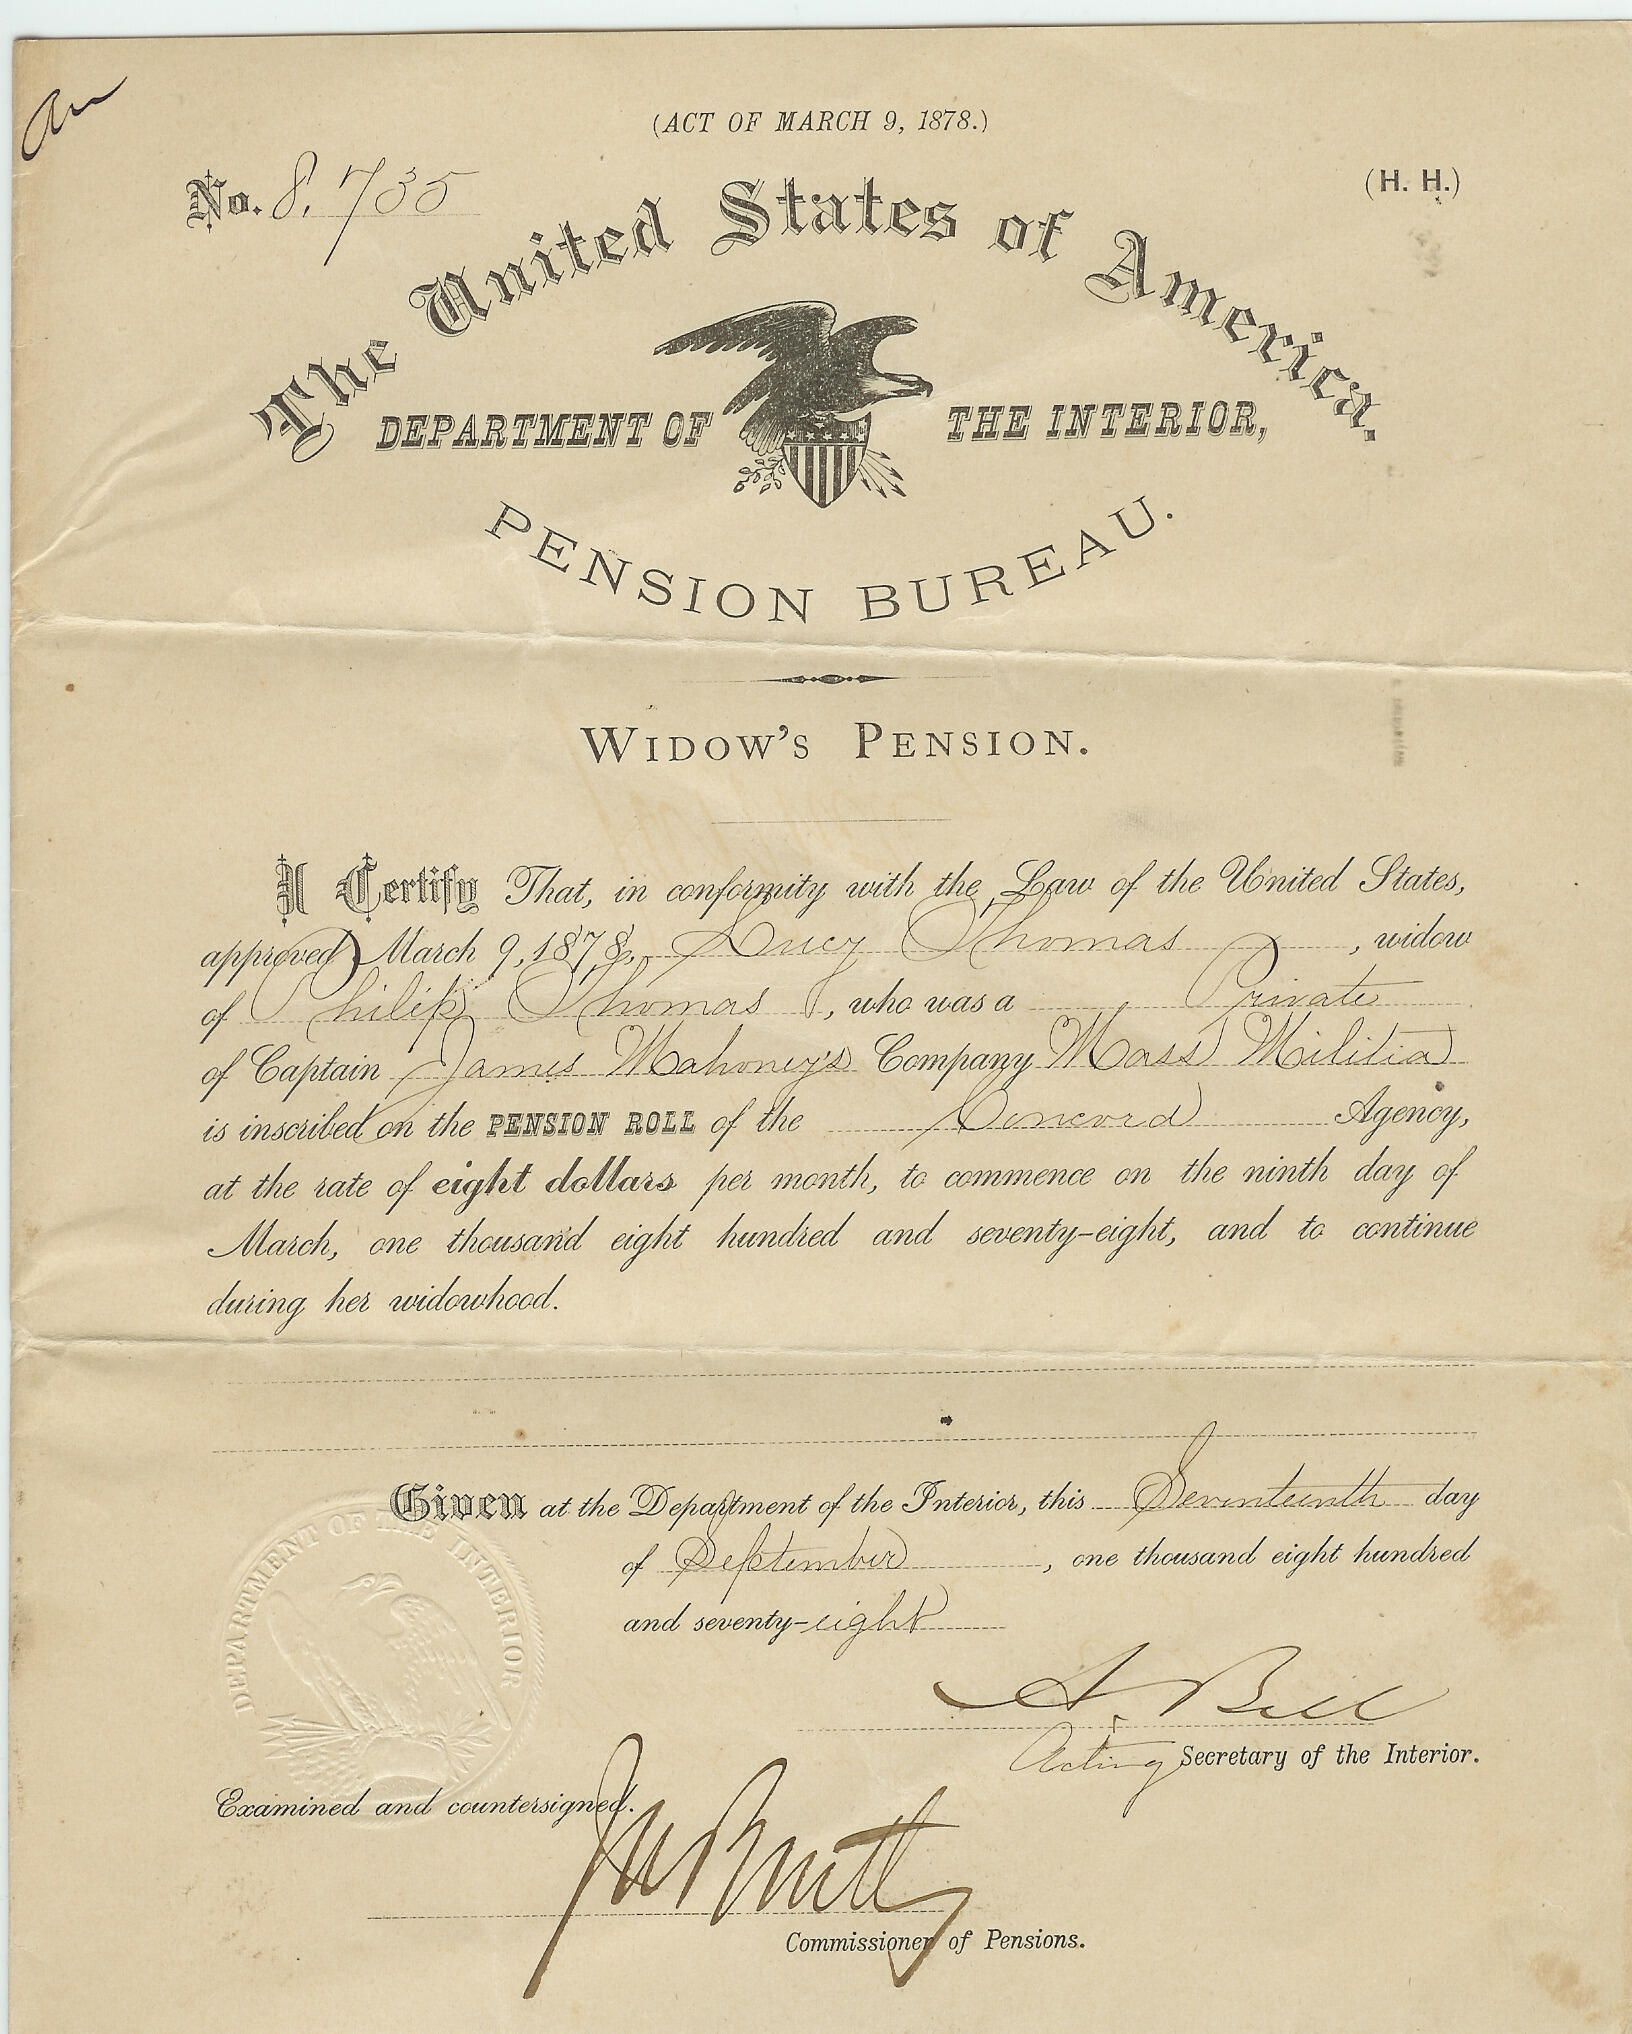 (ACT OF MARCH 9, 1878.)
No. 8,735
(H. H.)
The United States of America.
DEPARTMENT OF THE INTERIOR,
PENSION BUREAU.
WIDOW'S PENSION.
I Certify That, in conformity with the Law of the United States,
approved March 9, 1878, Lucy Thomas, widow
of Philip Thomas, who was a Private
of Captain James Mahoney's Company Mass Militia
is inscribed on the PENSION ROLL of the Concord Agency,
at the rate of eight dollars per month, to commence on the ninth day of
March, one thousand eight hundred and seventy-eight, and to continue
during her widowhood.
Given at the Department of the Interior, this Seventeenth day
of September, one thousand eight hundred
and seventy-eight
DEPARTMENT OF THE INTERIOR
A Bell
Acting Secretary of the Interior.
Examined and countersigned.
Commissioner of Pensions.